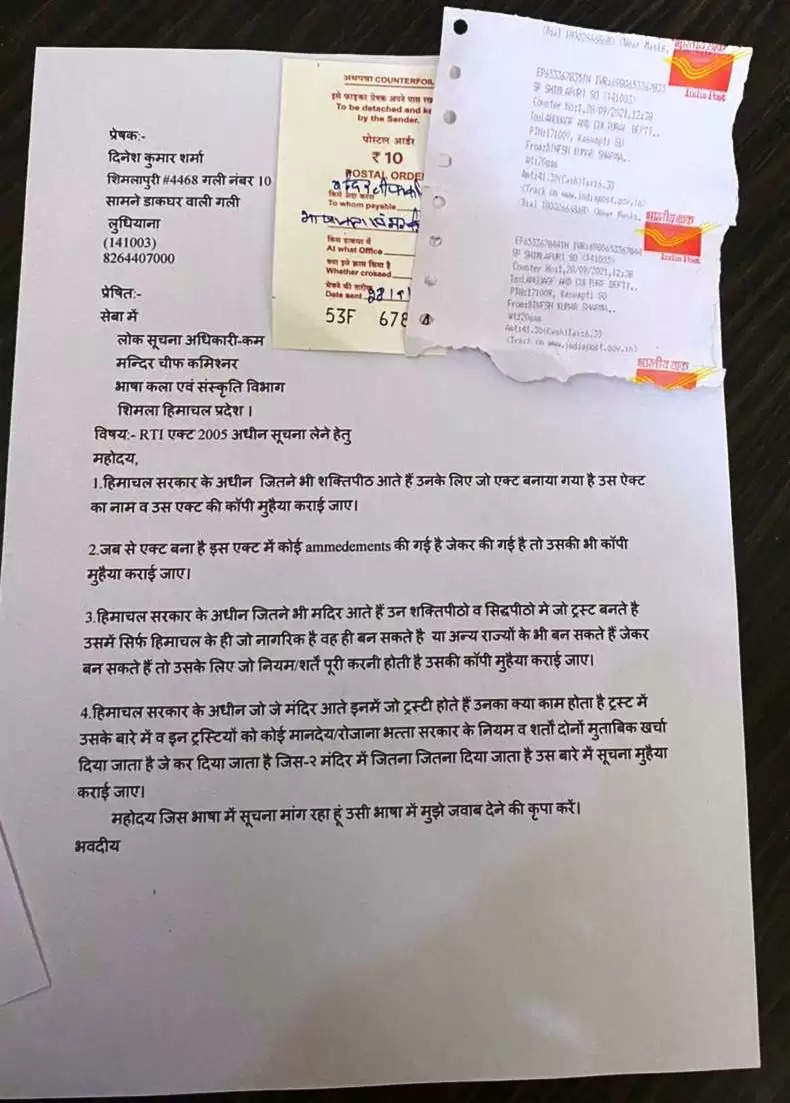 प्रेषक:-
दिनेश कुमार शर्मा
शिमलापुरी #4468 गली नंबर 10
सामने डाकघर वाली गली
लुधियाना
(141003)
8264407000
प्रेषित:-
सेबा में
लोक सूचना अधिकारी-कम
मन्दिर चीफ कमिश्नर
भाषा कला एवं संस्कृति विभाग
शिमला हिमाचल प्रदेश ।
विषय:- RTI एक्ट 2005 अधीन सूचना लेने हेतु
महोदय,
1.हिमाचल सरकार के अधीन जितने भी शक्तिपीठ आते हैं उनके लिए जो एक्ट बनाया गया है उस ऐक्ट
का नाम व उस एक्ट की कॉपी मुहैया कराई जाए।
2.जब से एक्ट बना है इस एक्ट में कोई ammedements की गई है जेकर की गई है तो उसकी भी कॉपी
मुहैया कराई जाए।
3.हिमाचल सरकार के अधीन जितने भी मदिर आते हैं उन शक्तिपीठो व सिद्धपीठो मे जो ट्रस्ट बनते है
उसमें सिर्फ हिमाचल के ही जो नागरिक है वह ही बन सकते है या अन्य राज्यों के भी बन सकते हैं जेकर
बन सकते हैं तो उसके लिए जो नियम/शर्तें पूरी करनी होती है उसकी कॉपी मुहैया कराई जाए।
4.हिमाचल सरकार के अधीन जो जे मंदिर आते इनमें जो ट्रस्टी होते हैं उनका क्या काम होता है ट्रस्ट में
उसके बारे में व इन ट्रस्टियों को कोई मानदेय/रोजाना भत्ता सरकार के नियम व शर्तों दोनों मुताबिक खर्चा
दिया जाता है जे कर दिया जाता है जिस-२ मंदिर में जितना जितना दिया जाता है उस बारे में सूचना मुहैया
कराई जाए।
महोदय जिस भाषा में सूचना मांग रहा हूं उसी भाषा में मुझे जवाब देने की कृपा करें।
भवदीय
अधपन्ना COUNTERFOIL
इसे फाड़कर प्रेषक अपने पास रख
To be detached and ke
by the Sender.
पोस्टल आर्डर
₹ 10
POSTAL ORDER
To whom payable
किस डाकघर में
At what Office
क्या इसे क्रास किया है
Whether crossed
भेजने की तारीख
Date sent
53F 678
India Post
SP SHIMLAPURI SO (141003)
Counter No:1,28/09/2021,12:28
To:LANGUAGE AND CULTURE DEPTT..
PIN:171009, Kasumpti SO
From:DINESH KUMAR SHARMA..
Wt:20gms
Amt:41.30(Cash)Tax:6.30
(Track on www.indiapost.gov.in)
भारतीय डाक
India Post
SP SHIMLAPURI SO (141003)
Counter No:1,28/09/2021,12:28
To:LANGUAGE AND CULTURE DEPTT..
PIN:171009, Kasumpti SO
From:DINESH KUMAR SHARMA..
Wt:20gms
Amt:41.30(Cash)Tax:6.30
(Track on www.indiapost.gov.in)
भारतीय डाक